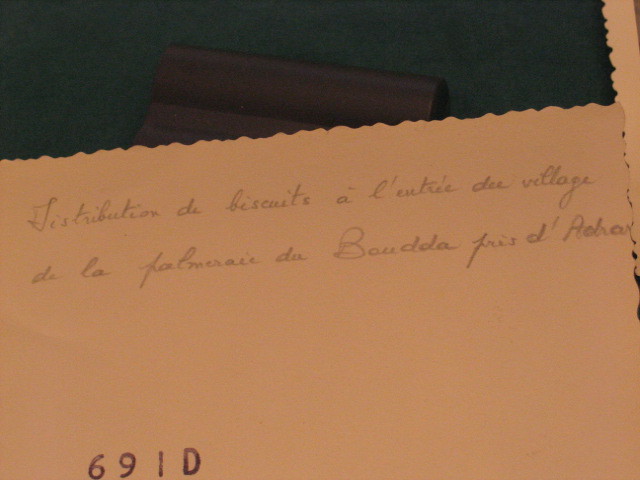 Distribution de biscuits à l'entrée du village
de la palmeraie du Boudda près d'Adrar
691D